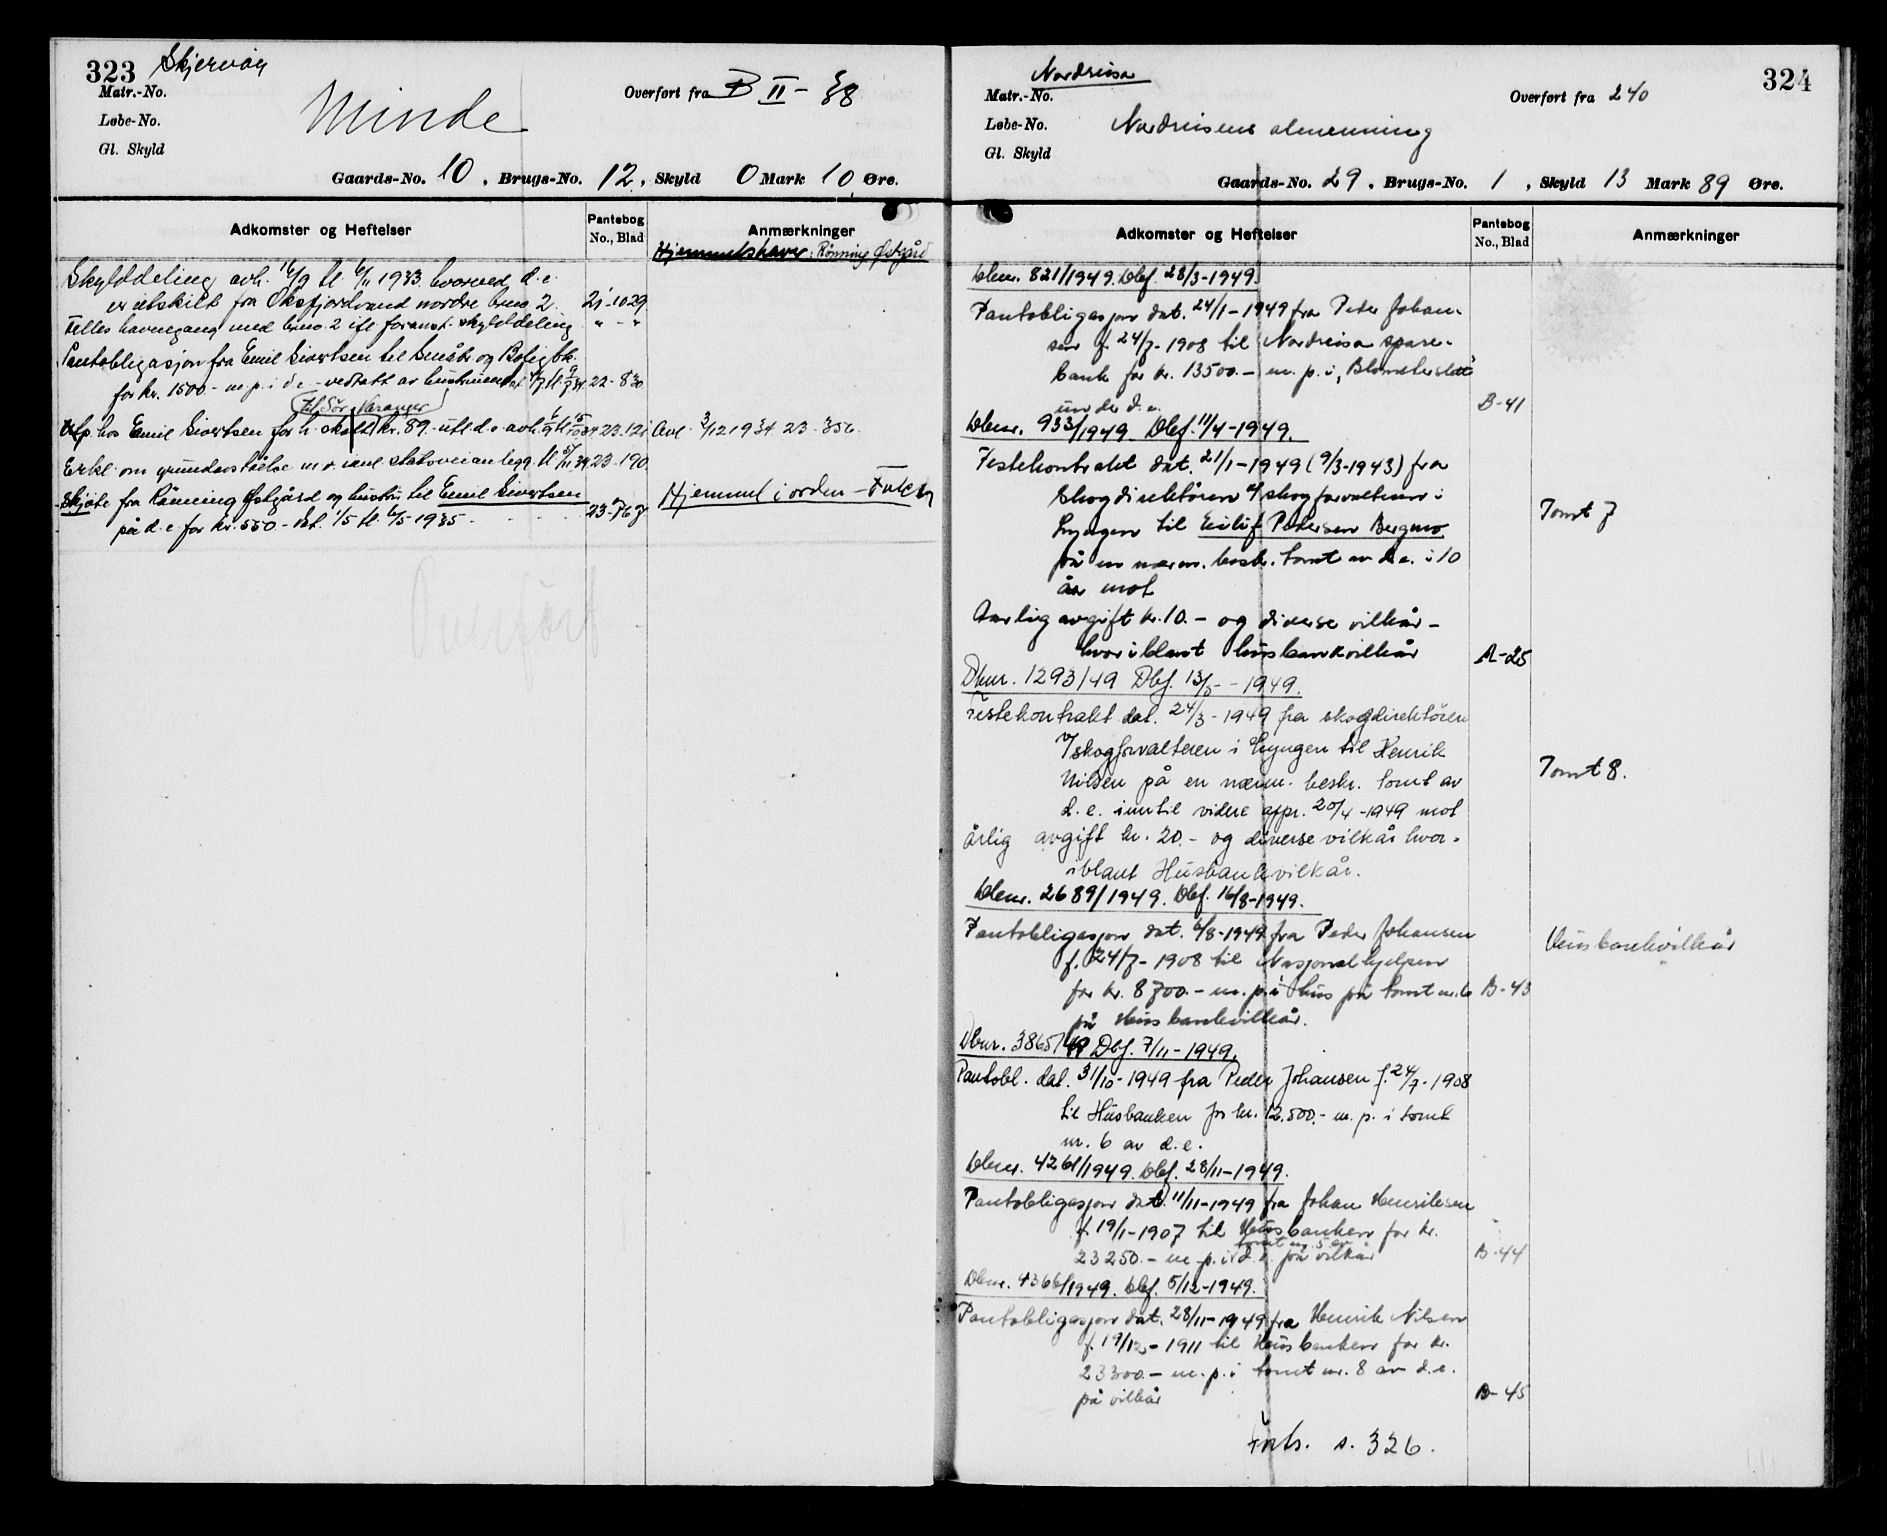 323 Skjervøy
Matr.-No.
Løbe-No.
Gl. Skyld
Minde
Overført fra B II - 88
Gaards-No. 10, Brugs-No. 12, Skyld 0 Mark 10 Øre.
Adkomster og Heftelser
Pantebog No., Blad
Anmærkninger
Hjemmelshaver: Rönning Østgård
Skylddeling avh. 16/9 tl. 6/11 1933 hvorved d. e.
er utskilt fra Oksfjordvand nordre bno. 2. 21-1029
Felles havnegang med bno. 2 ifl. foranst. skylddeling " - "
Pantobligasjon fra Emil Sivertsen til Småbr. og Boligbk.
for kr. 1500.- m. p. i d. e. - vedtatt av hustruen 22-830
til Sör-Varanger
Utp. hos Emil Sivertsen for h. skatt kr. 89.- utl. d. e. avh. 23-121 Avl. 3/12 1934 23-356
Erkl. om grunnavståelse m. v. 23-190
Skjøte fra Rönning Østgård og hustru til Emil Sivertsen
på d. e. for kr. 550.- dat. 1/5 tl. 6/5-1935 23-767
Hjemmel i orden -
Overført
Nordreisa
324
Matr.-No.
Løbe-No.
Gl. Skyld
Nordreisens almenning
Overført fra 240
Gaards-No. 29, Brugs-No. 1, Skyld 13 Mark 89 Øre.
Adkomster og Heftelser
Pantebog No., Blad
Anmærkninger
Dbnr. 821/1949. Dbf. 28/3-1949.
Pantobligasjon dat. 24/1-1949 fra Peder Johan-
sen f. 24/7-1908 til Nordreisa spare-
bank for kr. 13500.- m. p. i,
under d. e. B-41
Dbnr. 933/1949. Dbf. 11/4-1949.
Festekontrakt dat. 21/1-1949 (9/3-1943) fra
Skogdirektören v/skogforvalteren i
Lyngen til Eilif Pedersen Bergmo Tomt 7
på en nærm. beskr. tomt av d. e. i 10
år mot
Aarlig avgift kr. 10.- og diverse vilkår -
hvoriblant husbankvilkår A-25
Dbnr. 1293/49 Dbf. 13/5-1949.
Festekontrakt dat. 24/3-1949 fra skogdirektören
v/skogforvalteren i Lyngen til Henrik
Nilsen på en nærm. beskr. tomt av Tomt 8.
d. e. inntil videre appr. 20/4-1949 mot
årlig avgift kr. 20.- og diverse vilkår hvor-
iblant Husbankvilkår.
Dbnr. 2689/1949. Dbf. 16/8-1949.
Pantobligasjon dat. 6/8-1949 fra Peder Johansen Husbankvilkår
f. 24/7-1908 til Nasjonalhjelpen
for kr. 8700.- m. p. i hus på tomt nr. 6 B-43
på Husbankvilkår.
Dbnr. 3865/49 Dbf. 7/11-1949.
Pantobl. dat. 31/10-1949 fra Peder Johansen f. 24/7-1908
til Husbanken for kr. 12.500.- m. p. i tomt
nr. 6 av d. e.
Dbnr. 4261/1949. Dbf. 28/11-1949.
Pantobligasjon dat. 11/11-1949 fra Johan Henriksen
f. 19/1-1907 til Husbanken for kr.
tomt nr. 5 av
23250.- m. p. i d. e. på vilkår B-44
Dbnr. 4366/1949. Dbf. 5/12-1949.
Pantobligasjon dat. 28/11-1949 fra Henrik Nilsen
f. 19/12-1911 til Husbanken for kr.
23300.- m. p. i tomt nr. 8 av d. e.
på vilkår B-45
Forts. s. 326.